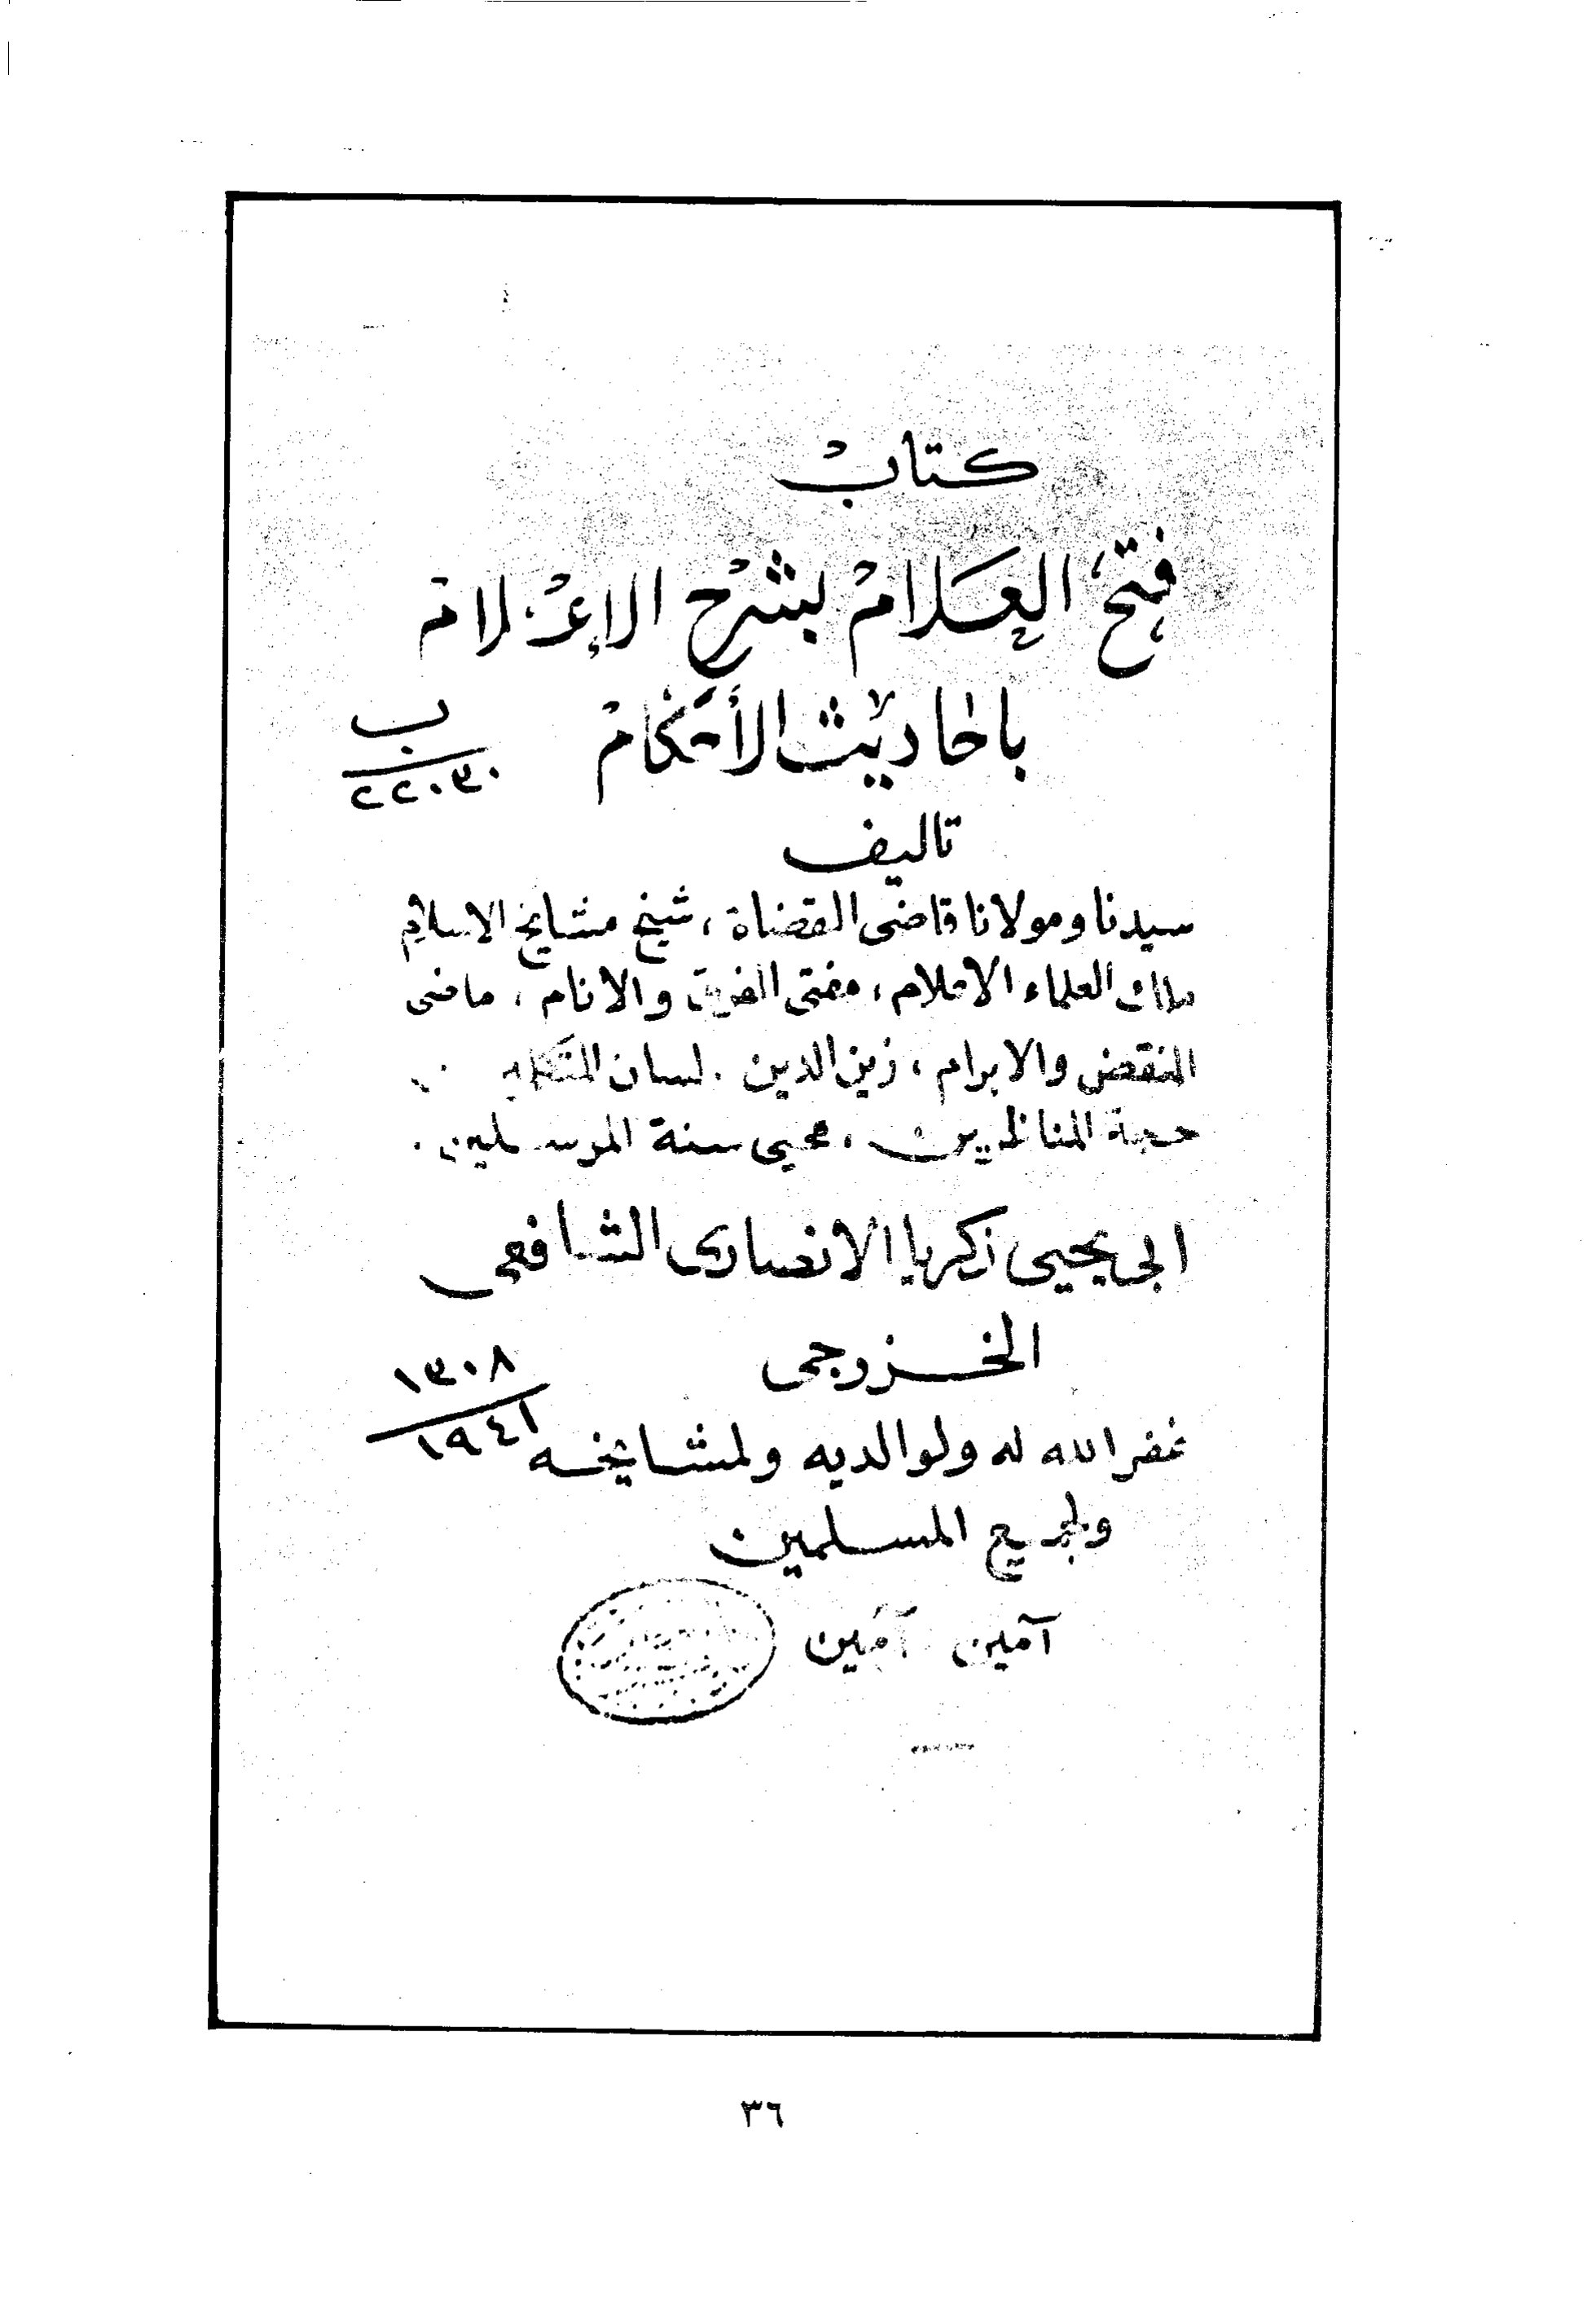 كتابْ
فتحَ العَلامْ بشرْح الإعْلامْ
باحاديث الأحكامْ
ب
٢٢٠٣٠
تاليف
سيدنا ومولانا قاضى القضاة، شيخ مشايخ الاسلام
ملك العلماء الاعلام، مفتى الفرق والانام،
النقض والابرام، زين الدين. لسان
حجة المناظرين، محيى سنة المرسلين.
ابى يحيى زكريا الانصارى الشافعى
الخزرجى
١٣٠٨
١٩٤١
غفر الله له ولوالديه ولمشايخه
ولجميع المسلمين
آمين آمين
٣٦